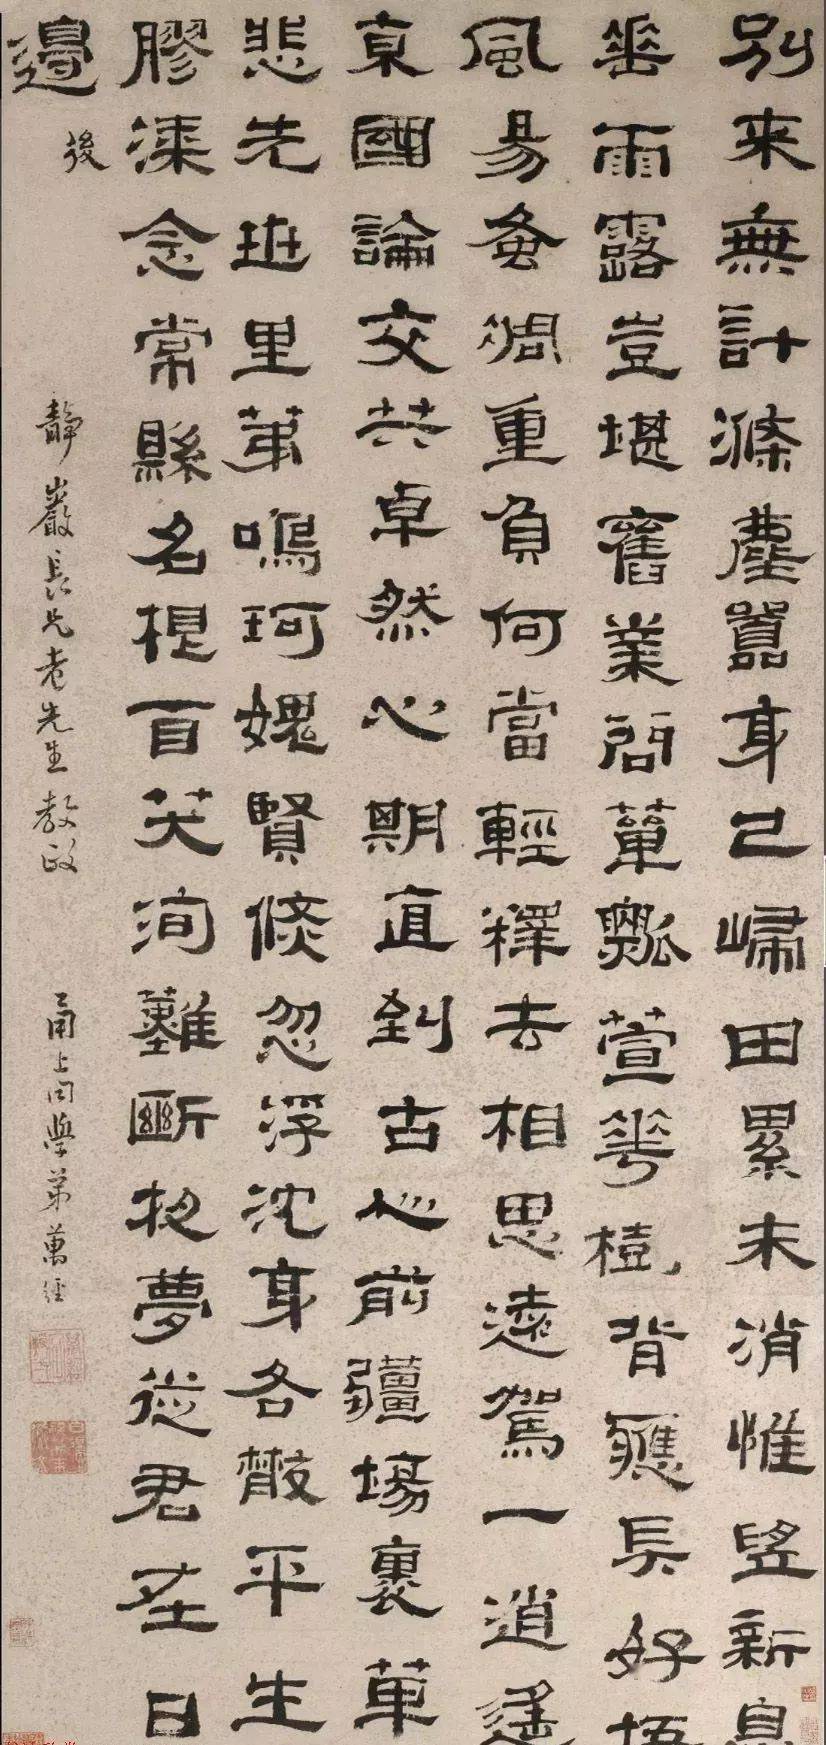 別來無計滌塵囂身已歸田累未消惟望新息
垂雨露豈堪舊業問簞瓢萱華樹背應長好梧
風易蚤凋重負何當輕釋去相思遠駕一逍遙
京國論交共卓然心期直到古心前疆場裹革
悲先班里第鳴珂媿賢倏忽浮沈身各散平生
膠漆念常縣名根自笑洵難斷夜夢從君在日
邊 後
靜巖長兄老先生教政
甬上同學弟萬經